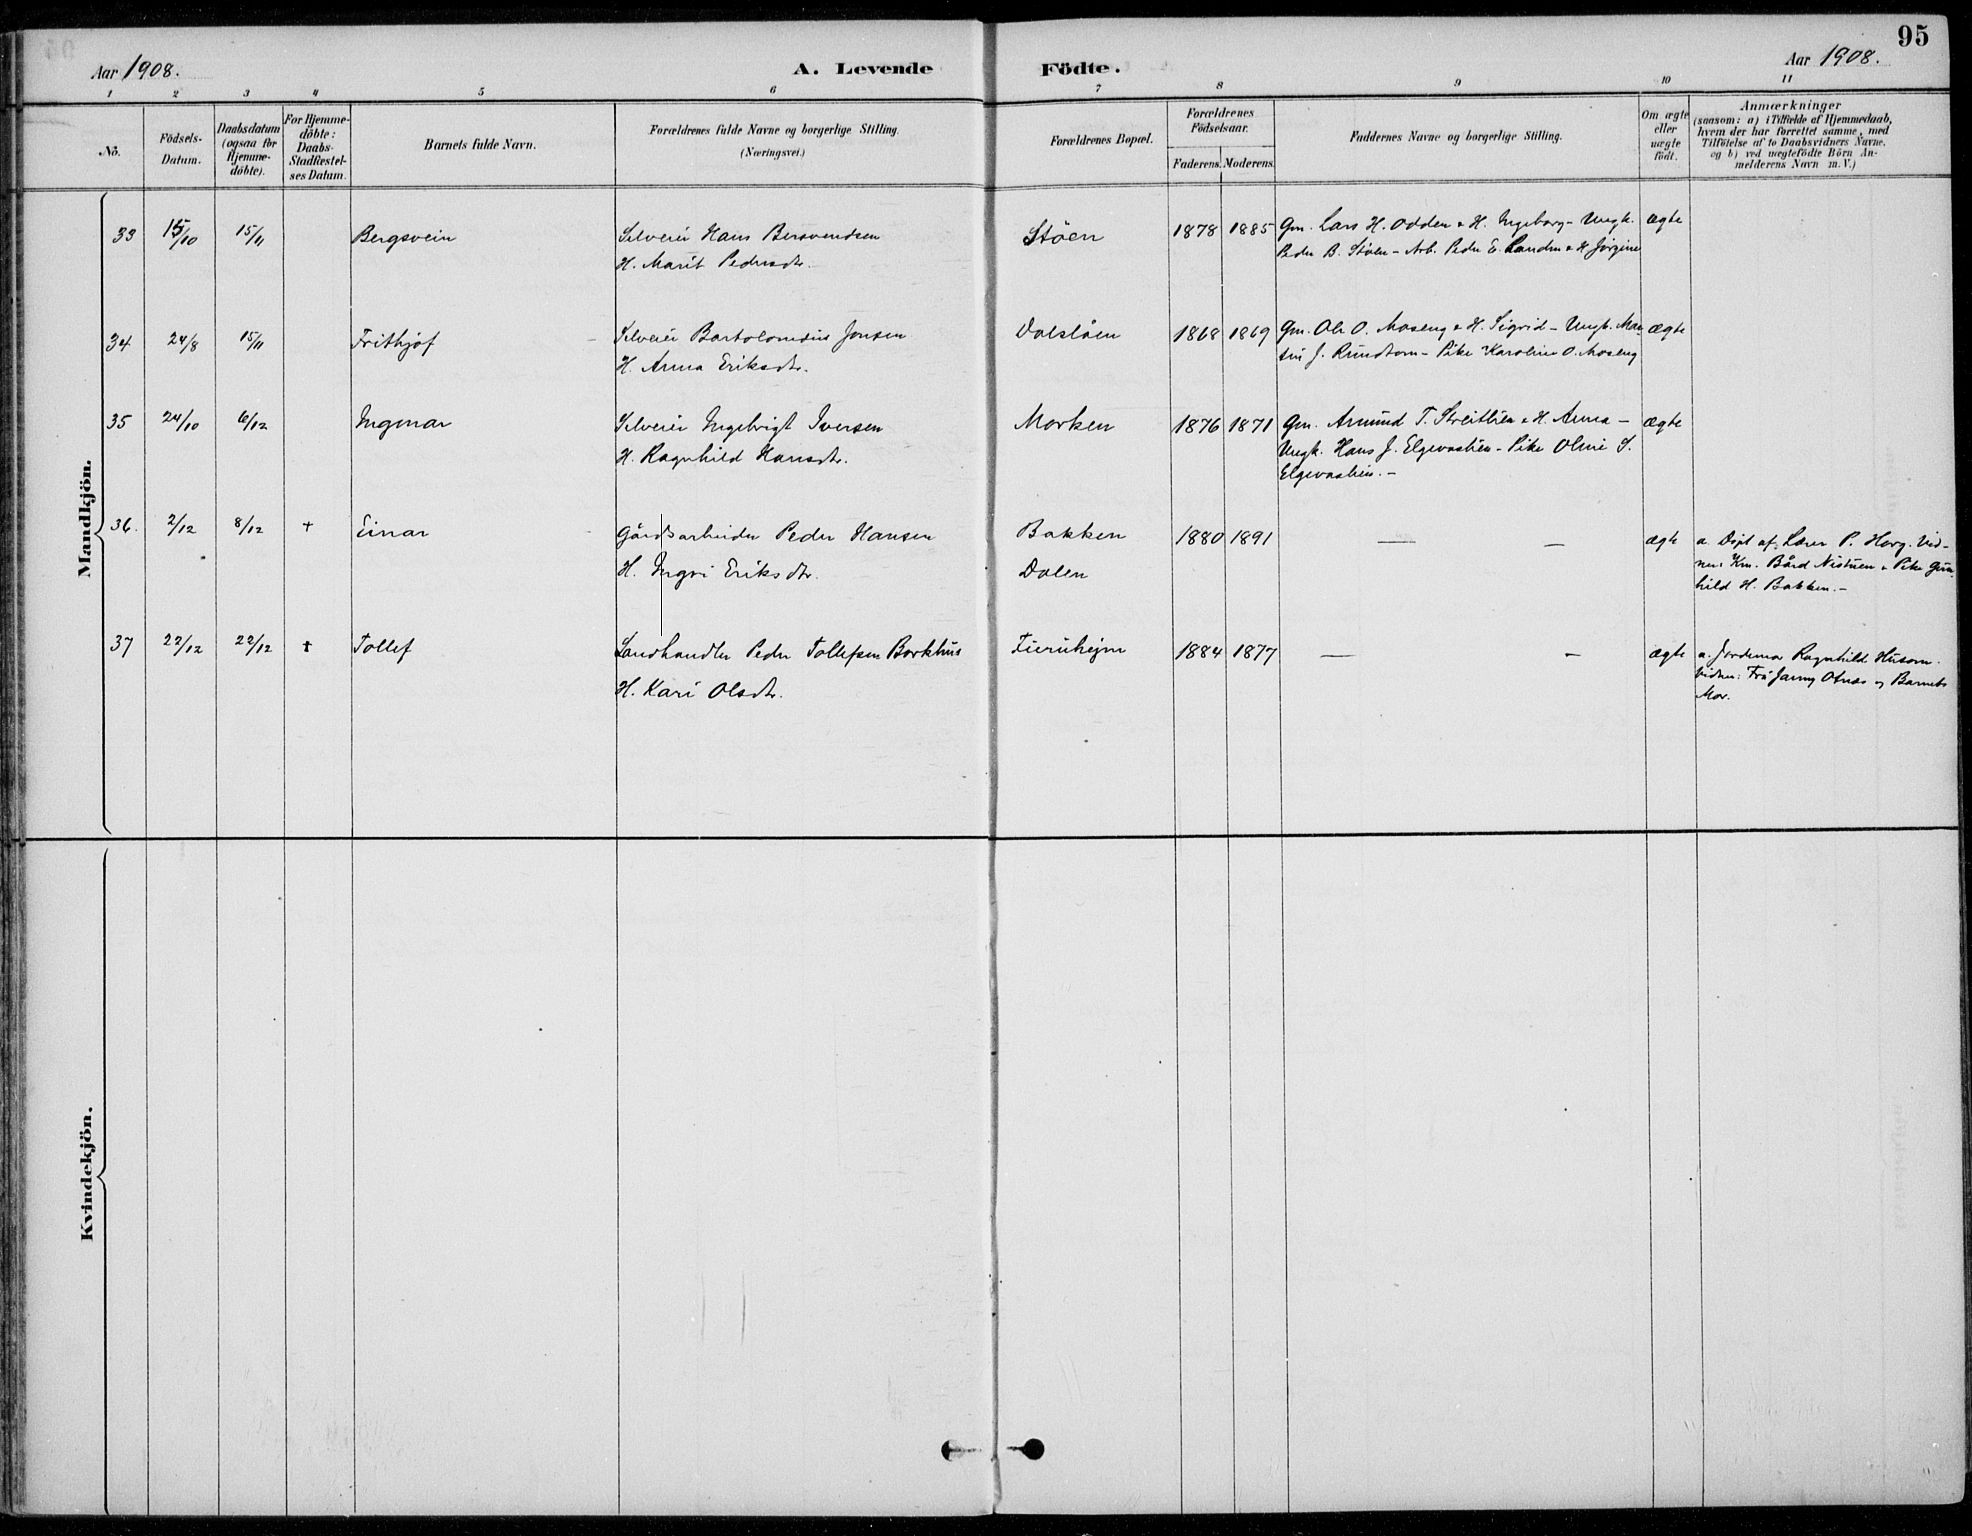 95
Aar 1908.
A. Levende Födte.
Aar 1908.
1 2 3 4 5 6 7 8 9 10 11
No.
Födsels-
Datum.
Daabsdatum
(ogsaa for
Hjemme-
döbte).
For Hjemme-
döbte:
Daabs-
Stadfæstel-
ses Datum.
Barnets fulde Navn.
Forældrenes fulde Navne og borgerlige Stilling.
(Næringsvei.)
Forældrenes Bopæl.
Forældrenes
Födselsaar.
Faderens. Moderens.
Faddernes Navne og borgerlige Stilling.
Om ægte
eller
uægte
födt.
Anmærkninger
(saasom: a) i Tilfælde af Hjemmedaab,
hvem der har forrettet samme, med
Tilföielse af to Daabsvidners Navne,
og b) ved uægtefödte Börn An-
melderens Navn m. V.)
Mandkjön.
33 15/10 15/11 Bergsvein
Selveier Hans Bersvendsen
H. Marit Pedersdtr.
Stöen 1878 1885
Gm. Lars H. Odden & H. Ingeborg - Ungk.
Peder B. Stöen - Arb. Peder E. Sanden & H. Jörgine
ægte
34 24/8 15/11 Frithjof
Selveier Bartolomæus Jonsen
H. Anna Eriksdtr.
Dalslåen 1868 1869
Gm. Ole O. Moseng & H. Sigrid - Ungk.
J. Rundtom - Pike Karoline O. Moseng
ægte
35 24/10 6/12 Ingemar
Selveier Ingebrigt Iversen
H. Ragnhild Hansdtr.
Morken 1876 1871
Gm. Amund T. Streitlien & H. Anna -
Ungk. Hans J. Elgevaslien - Pike Oline S.
Elgevaslien. -
ægte
36. 2/12 8/12 + Einar
Gårdsarbeider Peder Hansen
H. Ingri Eriksdtr.
Bakken
Dalen
1880 1891 — —
ægte
a. Döpt af Lærer P. Horg. Vid-
ner: Km. Bård Nistuen & Pike Gun-
hild H. Bakken. -
37 22/12 22/12 + Tollef
Landhandler Peder Tollefsen Borkhus
H. Kari Olsdtr.
Furuhejm 1884 1877 — —
ægte
a. Jordemor Ragnhild Husom.
Vidner: Fru Jenny Otnes og Barnets
Mor.
Kvindekjön.